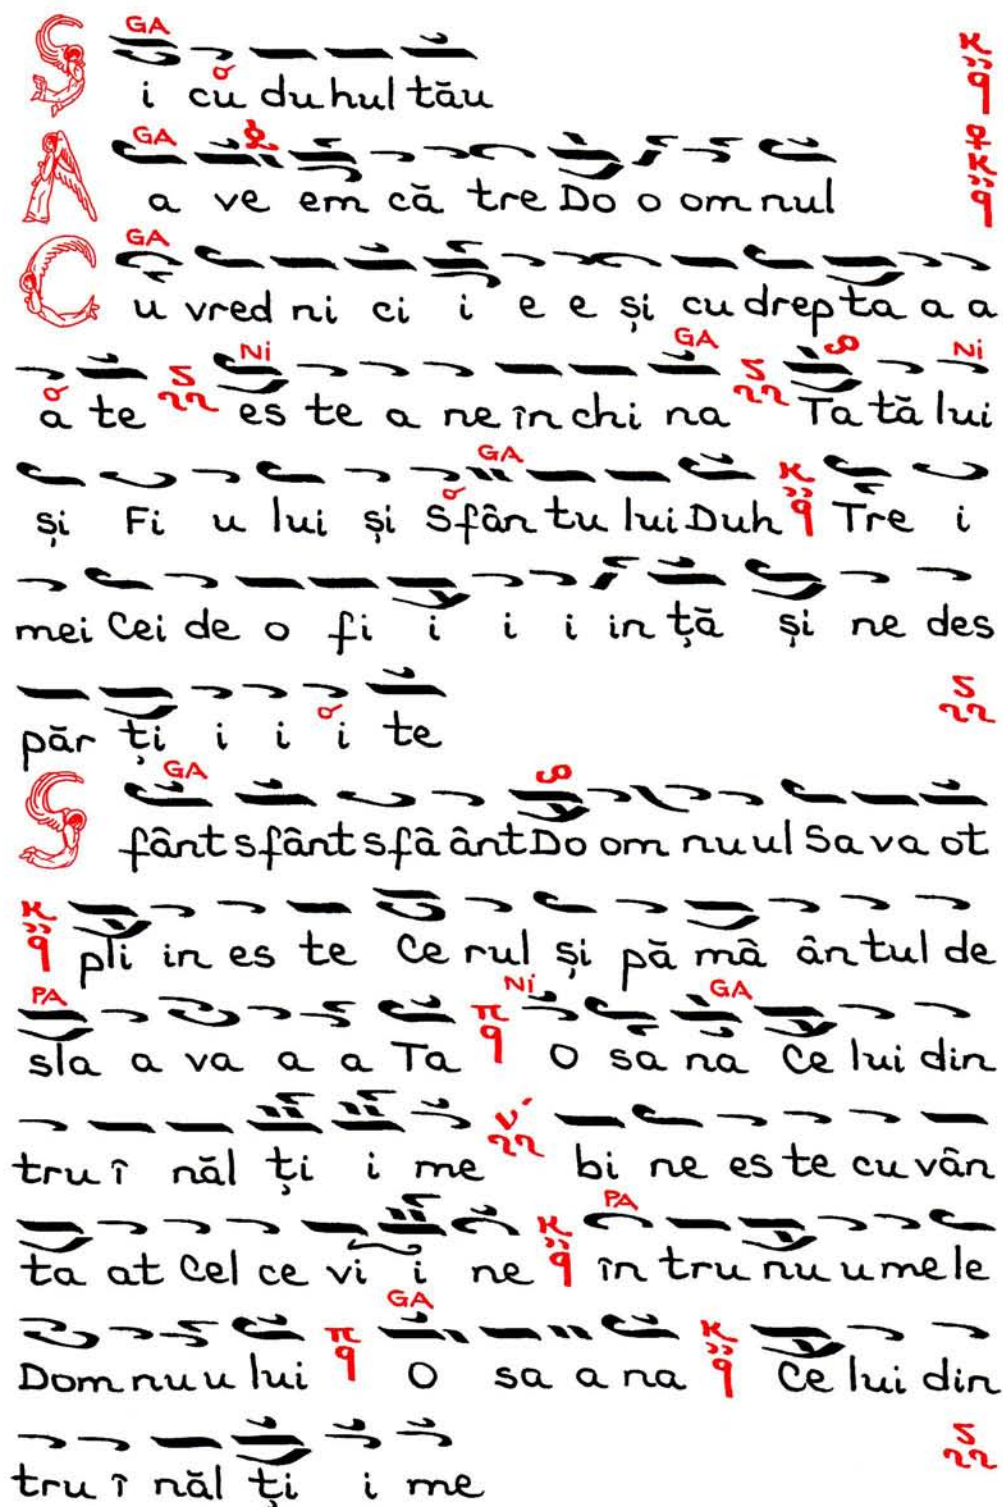 GA
S i cu du hul tău
GA
A a ve em că tre Do o om nul
GA
C u vred ni ci i e e și cu drep ta a a
Ni GA Ni
a te es te a ne în chi na Ta tă lui
GA
și Fi u lui și Sfân tu lui Duh Tre i
mei Cei de o fi i i i in ță și ne des
păr ți i i i te
GA
S fânt sfânt sfâ ânt Do om nu ul Sa va ot
pli in es te Ce rul și pă mâ ân tul de
PA Ni GA
sla a va a a Ta O sa na Ce lui din
tru î năl ți i me bi ne es te cu vân
PA
ta at Cel ce vi i ne în tru nu u me le
GA
Dom nu u lui O sa a na Ce lui din
tru î năl ți i me